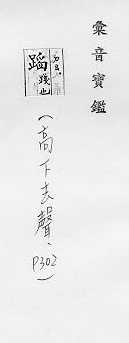 彙音寶鑑
蹈
踐也
(高下去聲、
P302)